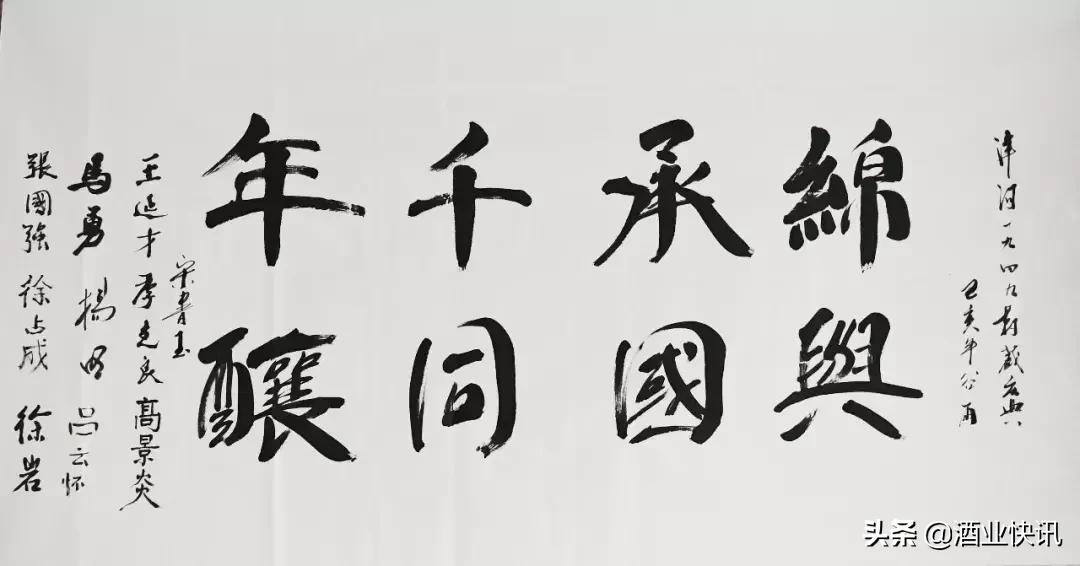 洋河一九四九封藏大典
己亥年谷雨
綿承千年
與國同釀
宋書玉
王延才 季克良 高景炎
馬勇 楊明 吕云怀
張國強 徐占成 徐岩
头条 @酒业快讯